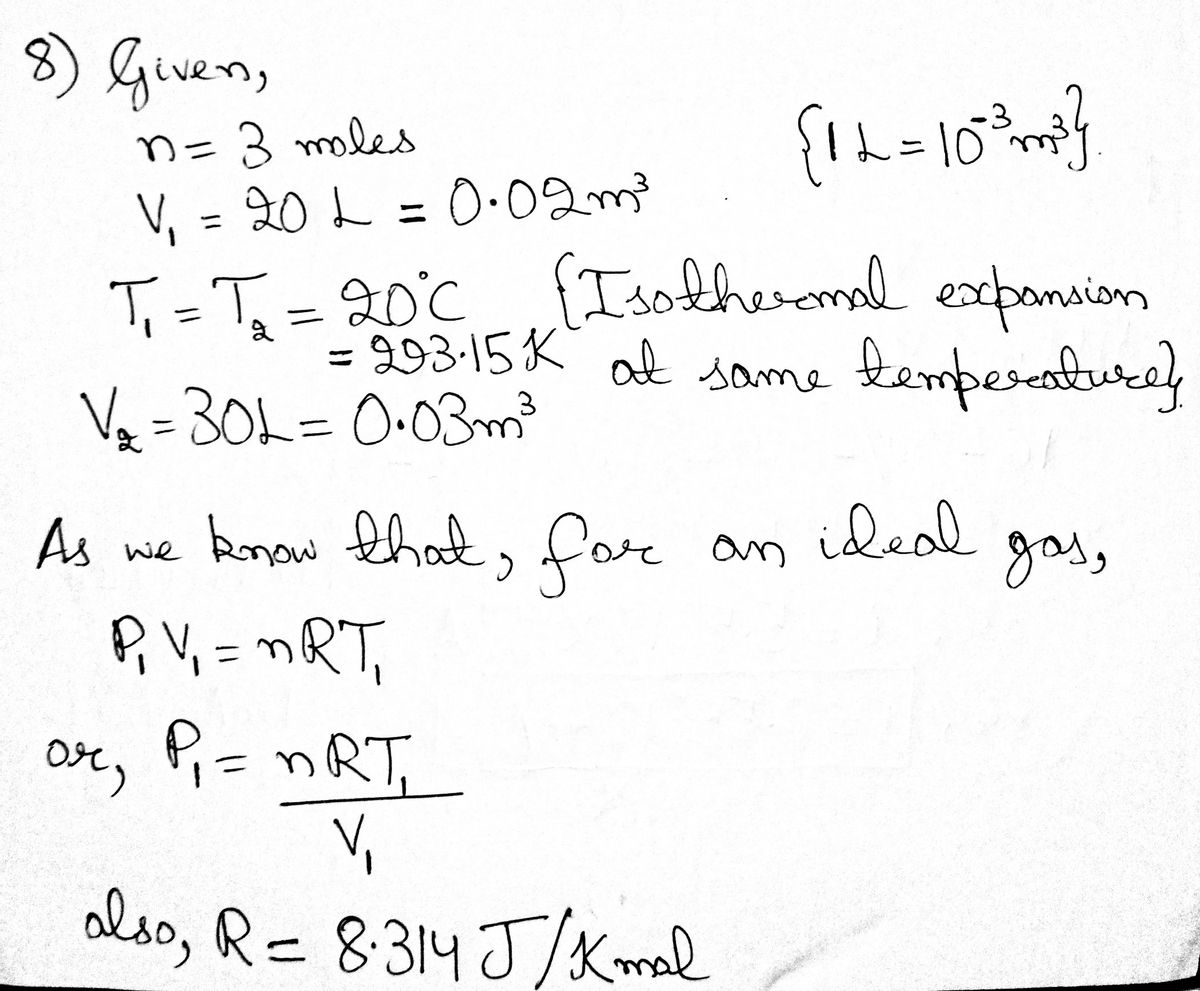 8) Given,
n = 3 moles
{1 L = 10⁻³ m³}.
V₁ = 20 L = 0.02 m³
T₁ = T₂ = 20°C {Isothermal expansion
= 293.15 K at same temperature}.
V₂ = 30L = 0.03 m³
As we know that, for an ideal gas,
P₁ V₁ = nRT₁
or, P₁ = nRT₁
V₁
also, R = 8.314 J/K mol